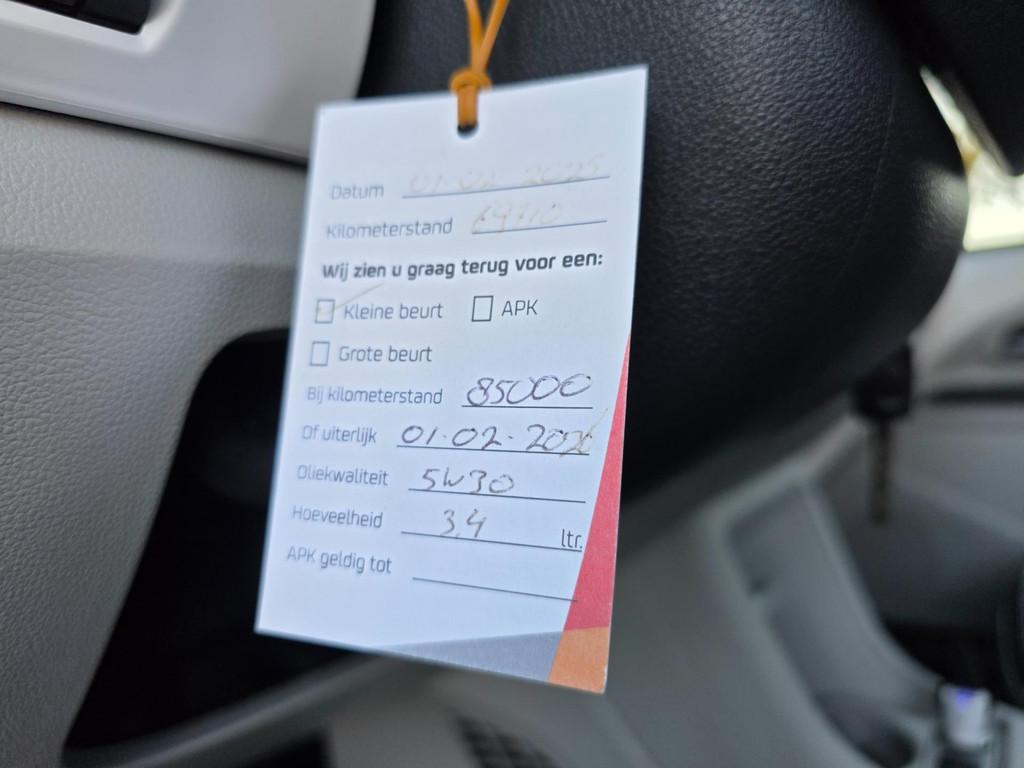 Datum 01-02-2025
Kilometerstand
Wij zien u graag terug voor een:
Kleine beurt APK
Grote beurt
Bij kilometerstand 85000
Of uiterlijk 01-02-2026
Oliekwaliteit 5W30
Hoeveelheid 3,4 ltr.
APK geldig tot